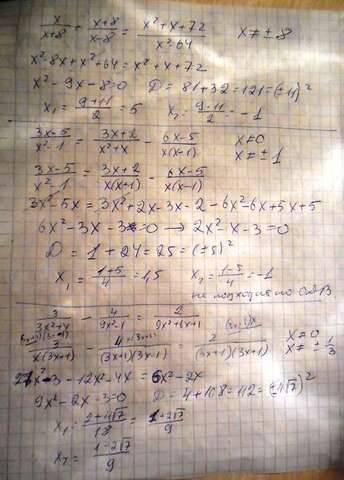 x/(x+8) + (x+8)/(x-8) = (x²+x+72)/(x²-64)   x ≠ ±8
x²-8x+x²+64=x²+x+72
x²-9x-8=0   D=81+32=121=(±11)²
x₁=(9+11)/2=5   x₂=(9-11)/2=-1
(3x-5)/(x²-1) = (3x+2)/(x²+x) - (6x-5)/(x(x-1))   x≠0
x≠±1
(3x-5)/(x²-1) = (3x+2)/(x(x+1)) - (6x-5)/(x(x-1))
3x²-5x=3x²+2x-3x-2-6x²-6x+5x+5
6x²-3x-3=0 → 2x²-x-3=0
D=1+24=25=(±5)²
x₁=(1+5)/4=1,5   x₂=(1-5)/4=-1
не подходит по ОДЗ
3/(3x²+x) - 4/(9x²-1) = 2/(9x²+6x+1)
3/(x(3x+1)) - 4/((3x+1)(3x-1)) = 2/((3x+1)(3x+1))   x≠0
x≠±1/3
27x²-3-12x²-4x=6x²-2x
9x²-2x-3=0   D=4+108=112=(±4√7)²
x₁=(2+4√7)/18=(1+2√7)/9
x₂=(1-2√7)/9